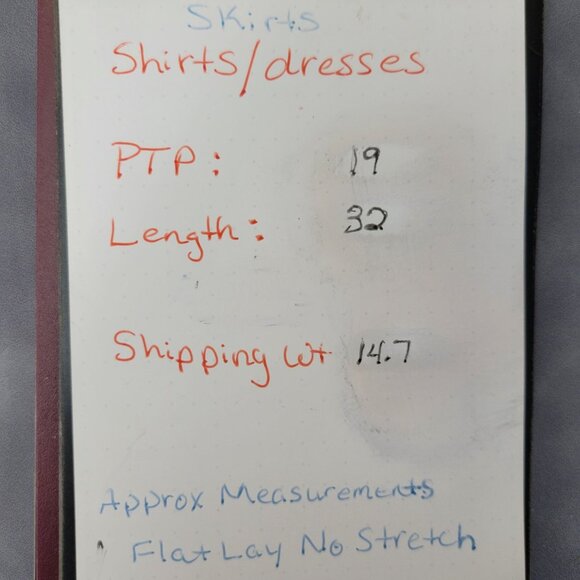 Skirts
Shirts/dresses
PTP: 19
Length: 32
Shipping Wt 14.7
Approx Measurements
Flat Lay No Stretch